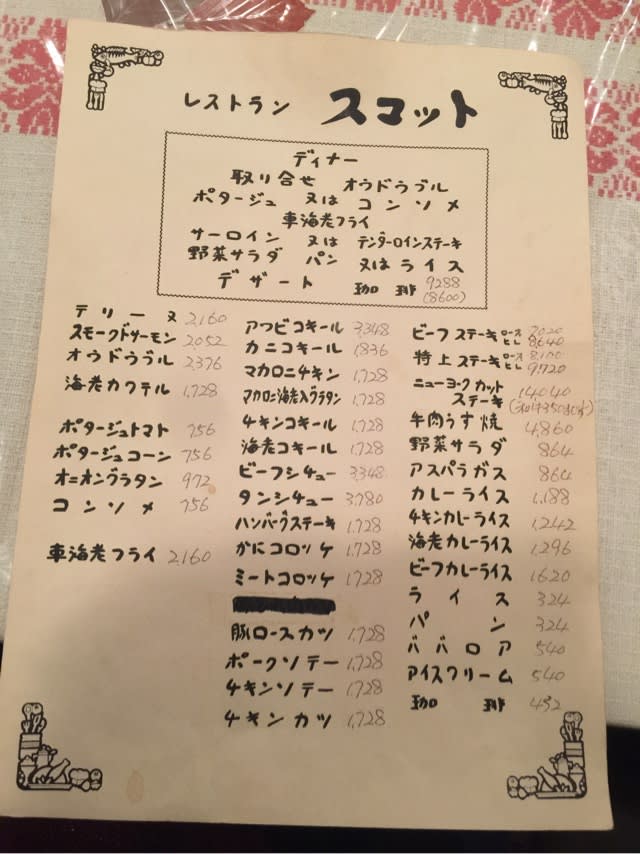 レストラン スコット
ディナー
取り合せ オウドウブル
ポタージュ 又は コンソメ
車海老フライ
サーロイン 又は テンダーロインステーキ
野菜サラダ パン 又はライス
デザート 珈琲 9288
(8600)
テリーヌ 2,160
スモークドサーモン 2,052
オウドウブル 2,376
海老カクテル 1,728
ポタージュトマト 756
ポタージュコーン 756
オニオングラタン 972
コンソメ 756
車海老フライ 2,160
アワビコキール 3,348
カニコキール 1,836
マカロニチキン 1,728
マカロニ海老入グラタン 1,728
チキンコキール 1,728
海老コキール 1,728
ビーフシチュー 3,348
タンシチュー 3,780
ハンバーグステーキ 1,728
かにコロッケ 1,728
ミートコロッケ 1,728
豚ロースカツ 1,728
ポークソテー 1,728
チキンソテー 1,728
チキンカツ 1,728
ビーフステーキ ロース 7020
ヒレ 8,640
特上ステーキ ロース 8,100
ヒレ 9,720
ニューヨークカット
ステーキ 14,040
牛肉うす焼 4,860
野菜サラダ 864
アスパラガス 864
カレーライス 1,188
チキンカレーライス 1,242
海老カレーライス 1,296
ビーフカレーライス 1,620
ライス 324
パン 324
ババロア 540
アイスクリーム 540
珈琲 432